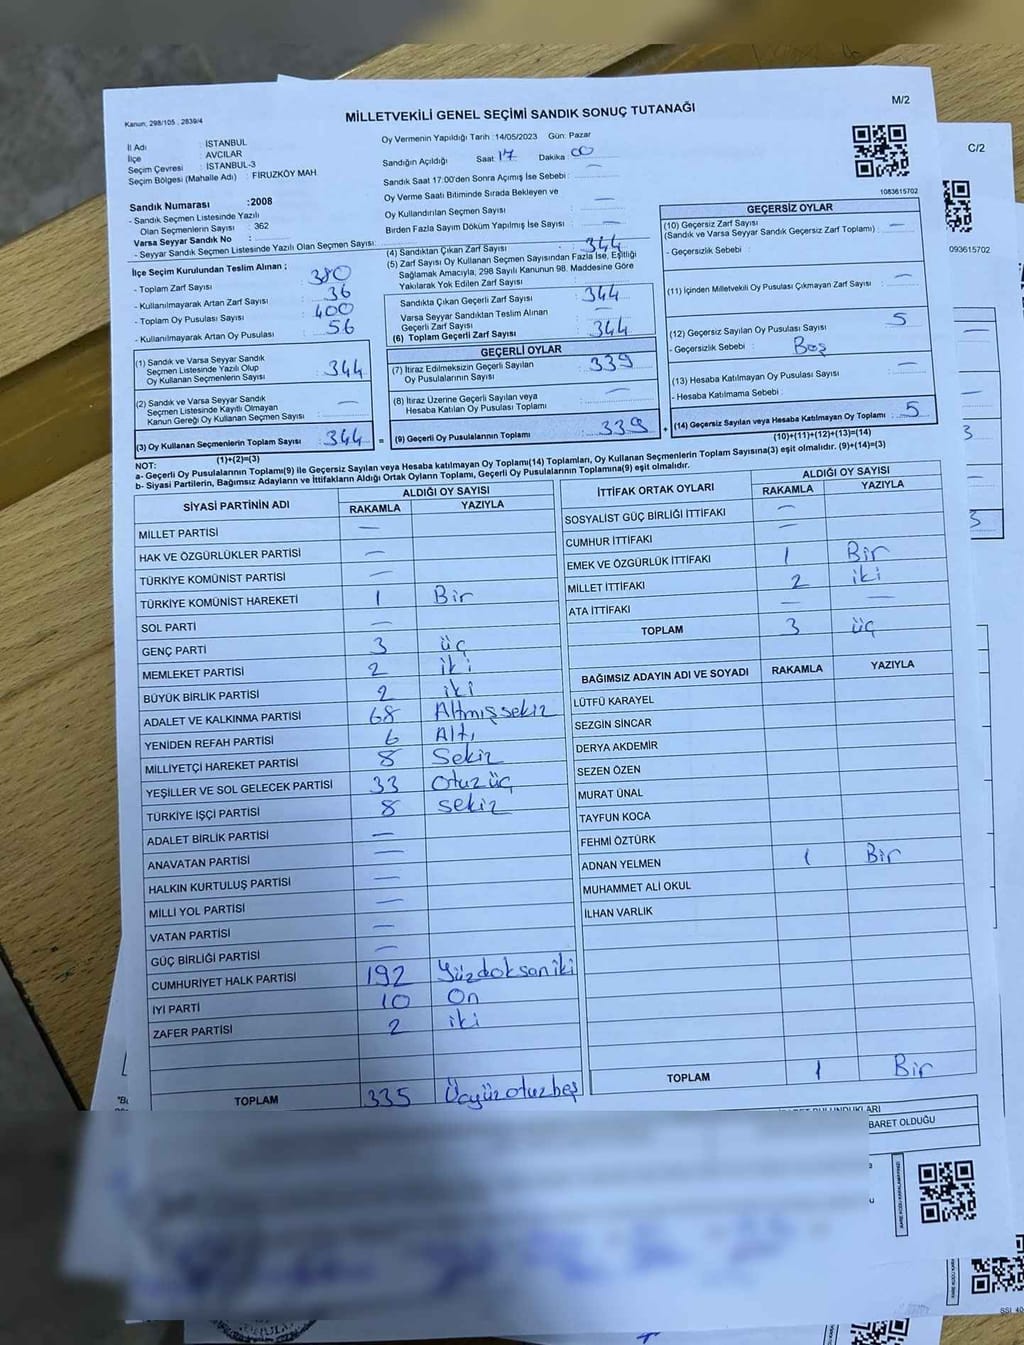 M/2
Kanun: 298/105 , 2839/4
MİLLETVEKİLİ GENEL SEÇİMİ SANDIK SONUÇ TUTANAĞI
İl Adı : İSTANBUL
İlçe : AVCILAR
Seçim Çevresi : İSTANBUL-3
Seçim Bölgesi (Mahalle Adı) : FİRUZKÖY MAH.
Sandık Numarası :2008
- Sandık Seçmen Listesinde Yazılı
Olan Seçmenlerin Sayısı : 362
Varsa Seyyar Sandık No :
- Seyyar Sandık Seçmen Listesinde Yazılı Olan Seçmen Sayısı:
Oy Vermenin Yapıldığı Tarih :14/05/2023 Gün: Pazar
Sandığın Açıldığı Saat 17 Dakika 00
Sandık Saat 17:00'den Sonra Açımış İse Sebebi : —
Oy Verme Saati Bitiminde Sırada Bekleyen ve
Oy Kullandırılan Seçmen Sayısı —
Birden Fazla Sayım Döküm Yapılmış İse Sayısı : —
1083615702
İlçe Seçim Kurulundan Teslim Alınan ;
- Toplam Zarf Sayısı : 380
- Kullanılmayarak Artan Zarf Sayısı : 36
- Toplam Oy Pusulası Sayısı : 400
- Kullanılmayarak Artan Oy Pusulası : 56
(1) Sandık ve Varsa Seyyar Sandık
Seçmen Listesinde Yazılı Olup
Oy Kullanan Seçmenlerin Sayısı : 344
(2) Sandık ve Varsa Seyyar Sandık
Seçmen Listesinde Kayıtlı Olmayan
Kanun Gereği Oy Kullanan Seçmen Sayısı : —
(3) Oy Kullanan Seçmenlerin Toplam Sayısı : 344 =
(1)+(2)=(3)
(4) Sandıktan Çıkan Zarf Sayısı : 344
(5) Zarf Sayısı Oy Kullanan Seçmen Sayısından Fazla İse, Eşitliği
Sağlamak Amacıyla, 298 Sayılı Kanunun 98. Maddesine Göre
Yakılarak Yok Edilen Zarf Sayısı :
Sandıkta Çıkan Geçerli Zarf Sayısı : 344
Varsa Seyyar Sandıktan Teslim Alınan
Geçerli Zarf Sayısı : —
(6) Toplam Geçerli Zarf Sayısı : 344
GEÇERLİ OYLAR
(7) İtiraz Edilmeksizin Geçerli Sayılan
Oy Pusulalarının Sayısı : 339
(8) İtiraz Üzerine Geçerli Sayılan veya
Hesaba Katılan Oy Pusulası Toplamı : —
(9) Geçerli Oy Pusulalarının Toplamı : 339 +
GEÇERSİZ OYLAR
(10) Geçersiz Zarf Sayısı
(Sandık ve Varsa Seyyar Sandık Geçersiz Zarf Toplamı) : —
- Geçersizlik Sebebi :
(11) İçinden Milletvekili Oy Pusulası Çıkmayan Zarf Sayısı : —
(12) Geçersiz Sayılan Oy Pusulası Sayısı : 5
- Geçersizlik Sebebi : Boş
(13) Hesaba Katılmayan Oy Pusulası Sayısı : —
- Hesaba Katılmama Sebebi :
(14) Geçersiz Sayılan veya Hesaba Katılmayan Oy Toplamı : 5
(10)+(11)+(12)+(13)=(14)
NOT:
a- Geçerli Oy Pusulalarının Toplamı(9) ile Geçersiz Sayılan veya Hesaba katılmayan Oy Toplamı(14) Toplamları, Oy Kullanan Seçmenlerin Toplam Sayısına(3) eşit olmalıdır. (9)+(14)=(3)
b- Siyasi Partilerin, Bağımsız Adayların ve İttifakların Aldığı Ortak Oyların Toplamı, Geçerli Oy Pusulalarının Toplamına(9) eşit olmalıdır.
SİYASİ PARTİNİN ADI ALDIĞI OY SAYISI
RAKAMLA YAZIYLA
MİLLET PARTİSİ —
HAK VE ÖZGÜRLÜKLER PARTİSİ —
TÜRKİYE KOMÜNİST PARTİSİ —
TÜRKİYE KOMÜNİST HAREKETİ 1 Bir
SOL PARTİ —
GENÇ PARTİ 3 üç
MEMLEKET PARTİSİ 2 iki
BÜYÜK BİRLİK PARTİSİ 2 iki
ADALET VE KALKINMA PARTİSİ 68 Altmışsekiz
YENİDEN REFAH PARTİSİ 6 Altı
MİLLİYETÇİ HAREKET PARTİSİ 8 Sekiz
YEŞİLLER VE SOL GELECEK PARTİSİ 33 Otuzüç
TÜRKİYE İŞÇİ PARTİSİ 8 sekiz
ADALET BİRLİK PARTİSİ —
ANAVATAN PARTİSİ —
HALKIN KURTULUŞ PARTİSİ —
MİLLİ YOL PARTİSİ —
VATAN PARTİSİ —
GÜÇ BİRLİĞİ PARTİSİ —
CUMHURİYET HALK PARTİSİ 192 Yüzdoksaniki
İYİ PARTİ 10 On
ZAFER PARTİSİ 2 iki
TOPLAM 335 Üçyüzotuzbeş
İTTİFAK ORTAK OYLARI ALDIĞI OY SAYISI
RAKAMLA YAZIYLA
SOSYALİST GÜÇ BİRLİĞİ İTTİFAKI —
CUMHUR İTTİFAKI —
EMEK VE ÖZGÜRLÜK İTTİFAKI 1 Bir
MİLLET İTTİFAKI 2 iki
ATA İTTİFAKI — —
TOPLAM 3 üç
BAĞIMSIZ ADAYIN ADI VE SOYADI RAKAMLA YAZIYLA
LÜTFÜ KARAYEL
SEZGİN SİNCAR
DERYA AKDEMİR
SEZEN ÖZEN
MURAT ÜNAL
TAYFUN KOCA
FEHMİ ÖZTÜRK
ADNAN YELMEN 1 Bir
MUHAMMET ALİ OKUL
İLHAN VARLIK
TOPLAM 1 Bir
BARET OLDUĞU
C/2
093615702
3
3